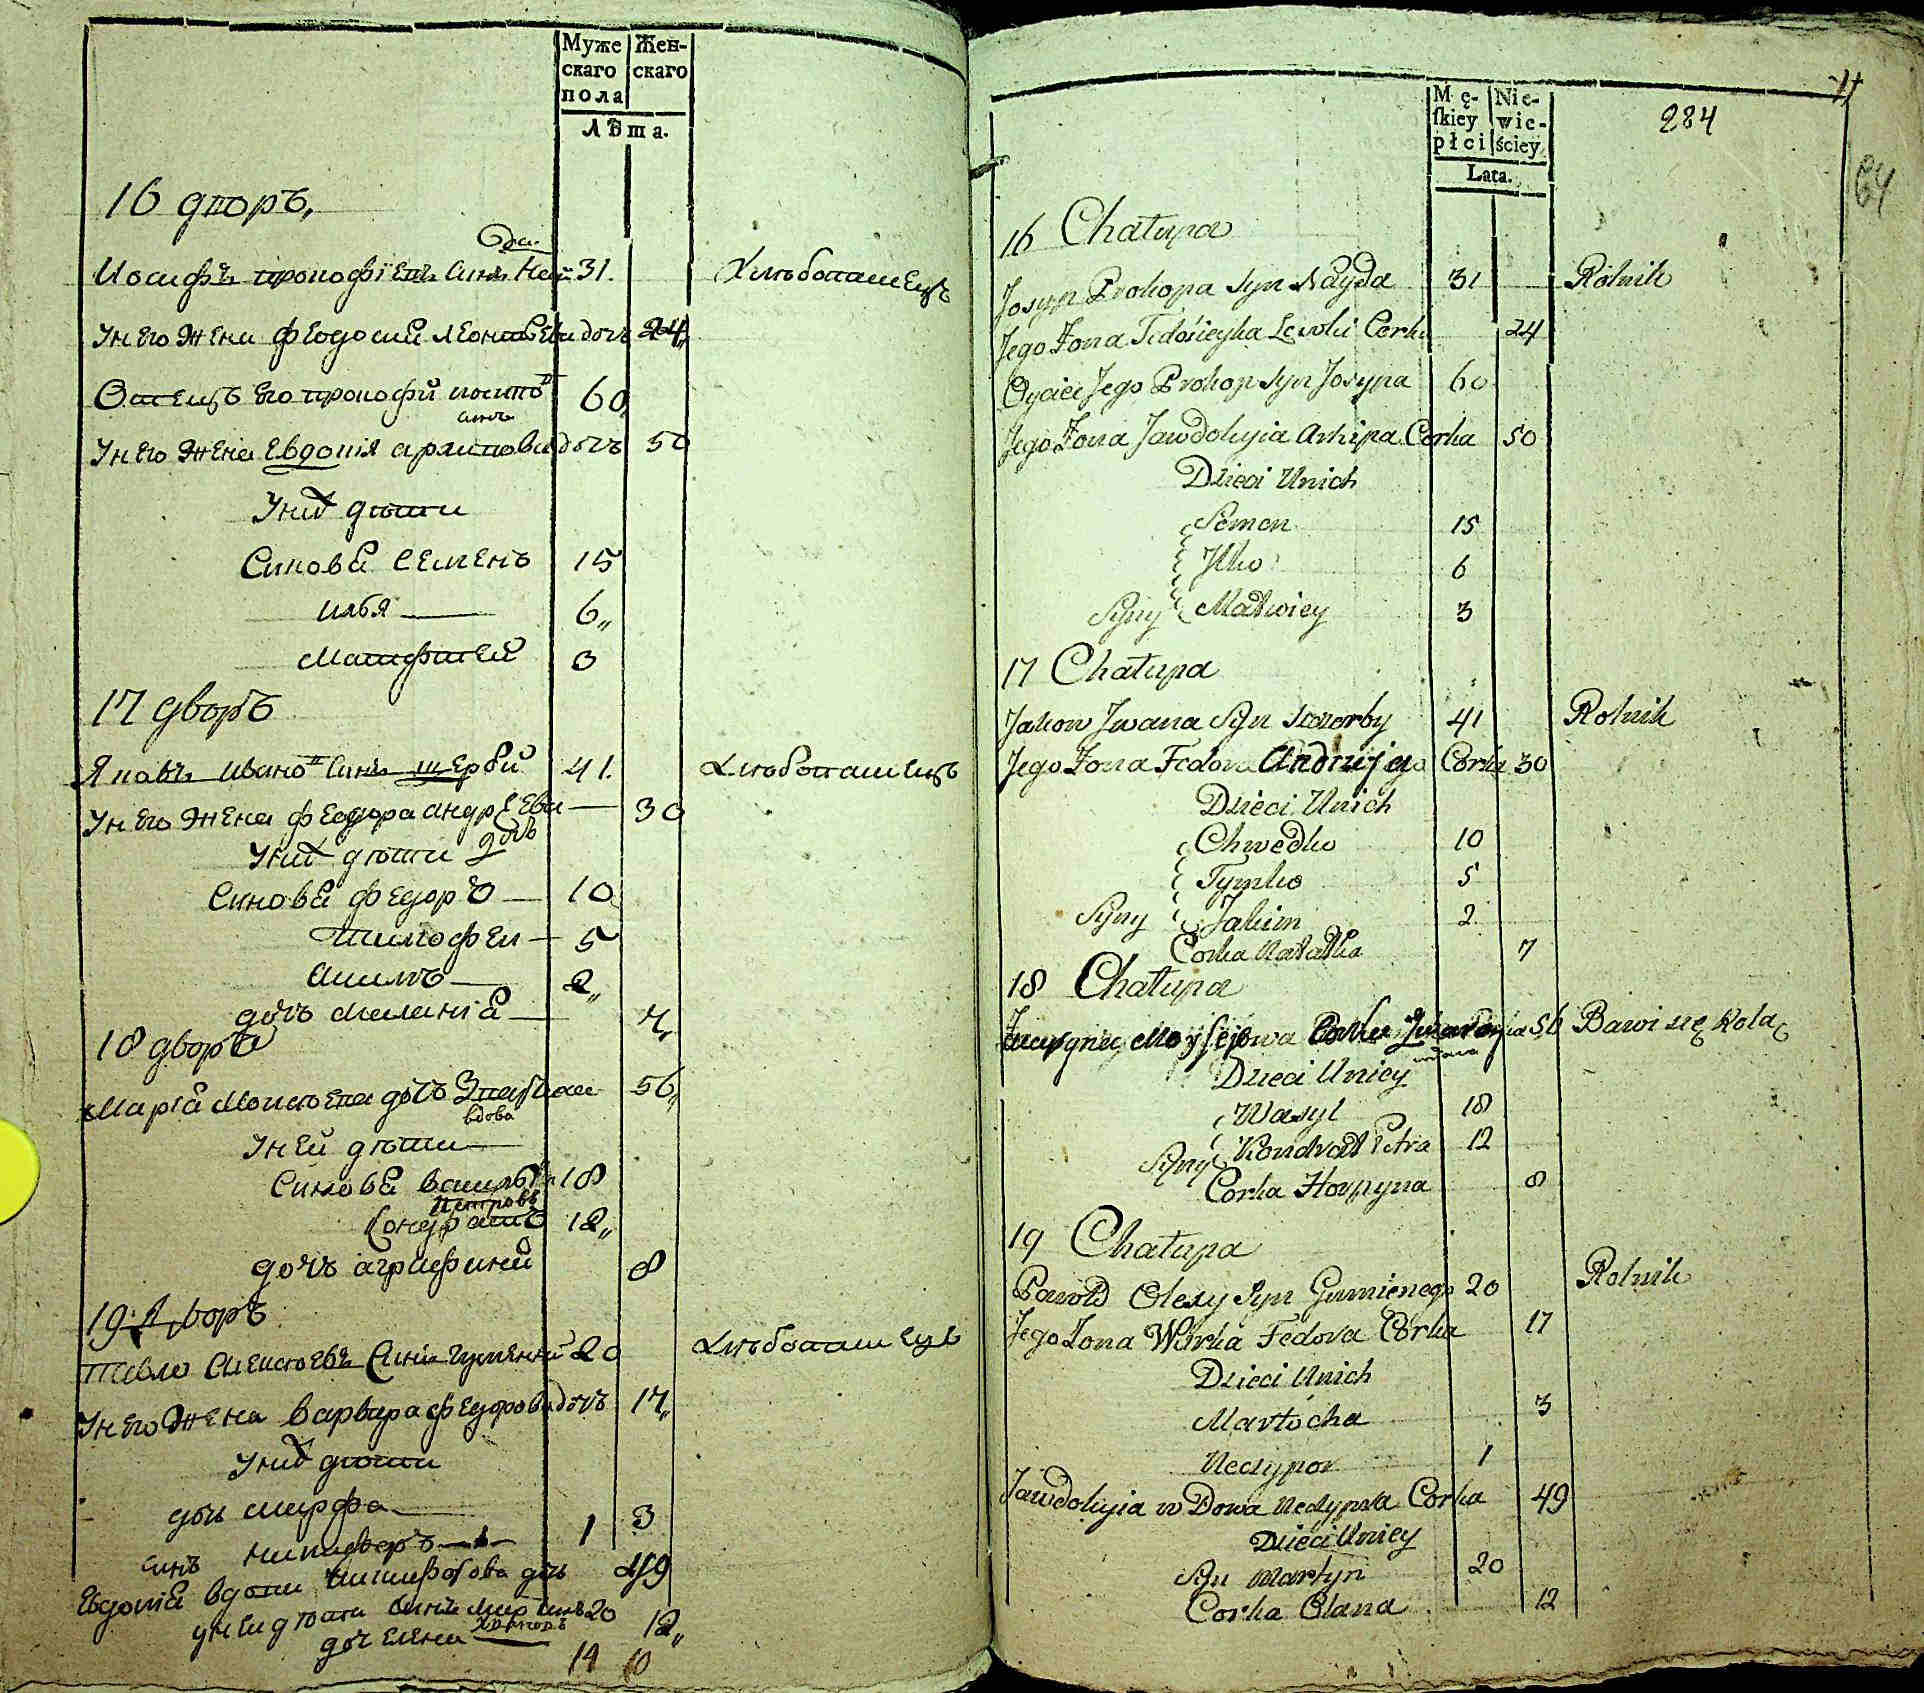 Муже Жен-
скаго скаго
пола
Лѣта.
16 дворъ,
Иосифъ прокофіевъ синъ Най 31. Хлѣбопашецъ
да
Унего жена феодосия леонтьева дочь 24
Отецъ его прокофий иосиповъ 60
синъ
Унего жена Евдокия архипова дочь 50
Унихъ дѣти
Синовья Семенъ 15
илья 6
Матфией 3
17 дворъ
Яковъ иванов синъ щерби 41. Хлѣбопашецъ
Унего жена феодора андрѣева 30
дочь
Унихъ дѣти
Синовья федоръ 10
тимофеи 5
акимъ 2
дочь Маланія 7
18 дворъ
Марія Моисѣева дочь 56
вдова
Уней дѣти
Синовья василь 18
Петровъ
Кондратъ 12
дочь агрифина 8
19 дворъ
павло Алексѣевъ Синъ гуменний 20 Хлѣбопашецъ
Унего жена варвара федорова дочь 17
Унихъ дѣти
дочь марфа 3
синъ никифоръ 1
Евдокія вдова никифорова дочь 49
уней дѣти синъ мартинъ 20
дочь елена 12
19 10
11
Mę- Nie-
ſkiey wie-
płci ściey
Lata.
284
64
16 Chałupa
Josyp Prokopa syn Nayda 31 Rolnik
Jego Zona Fedosieyka Lewki Corka 24
Oyciec Jego Prokop syn Josypa 60
Jego Zona Jawdokyia Arhipa Corka 50
Dzieci Unich
Semen 15
Jlko 6
Syny Matwiey 3
17 Chałupa
Jakow Jwana Syn Szczerby 41 Rolnik
Jego Zona Fedora Andrzeja Corka 30
Dzieci Unich
Chwedko 10
Tymko 5
Syny Jakim 2
Corka Natałka 7
18 Chałupa
Moysejowa Corka 56 Bawi się Rolą
wdowa
Dzieci Uniey
Wasyl 18
Syny Kondrat Petra 12
Corka Horpyna 8
19 Chałupa
Pawło Olexy Syn Gumienego 20 Rolnik
Jego Zona Wirka Fedora Corka 17
Dzieci Unich
Martocha 3
Neczypor 1
Jawdokyia wDowa Neczypora Corka 49
Dzieci Uniey
Syn Martyn 20
Corka Olana 12